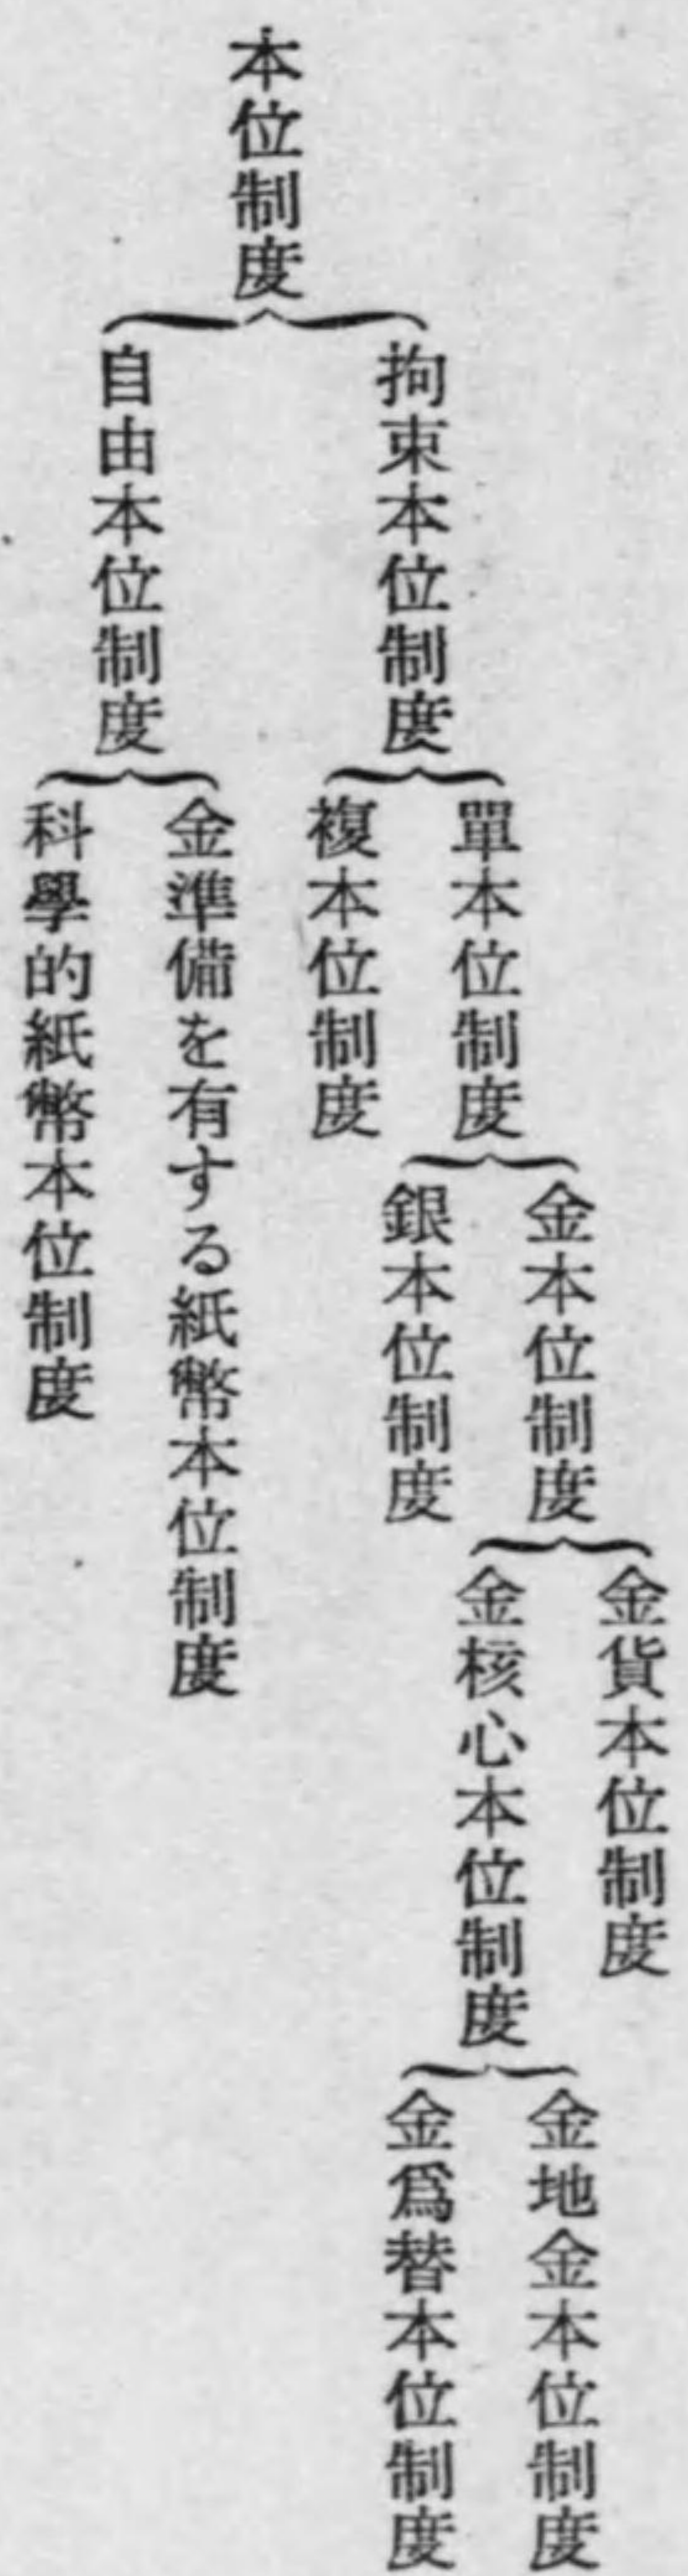 本位制度
拘束本位制度
單本位制度
金本位制度
金貨本位制度
金核心本位制度
金地金本位制度
金爲替本位制度
銀本位制度
複本位制度
自由本位制度
金準備を有する紙幣本位制度
科學的紙幣本位制度